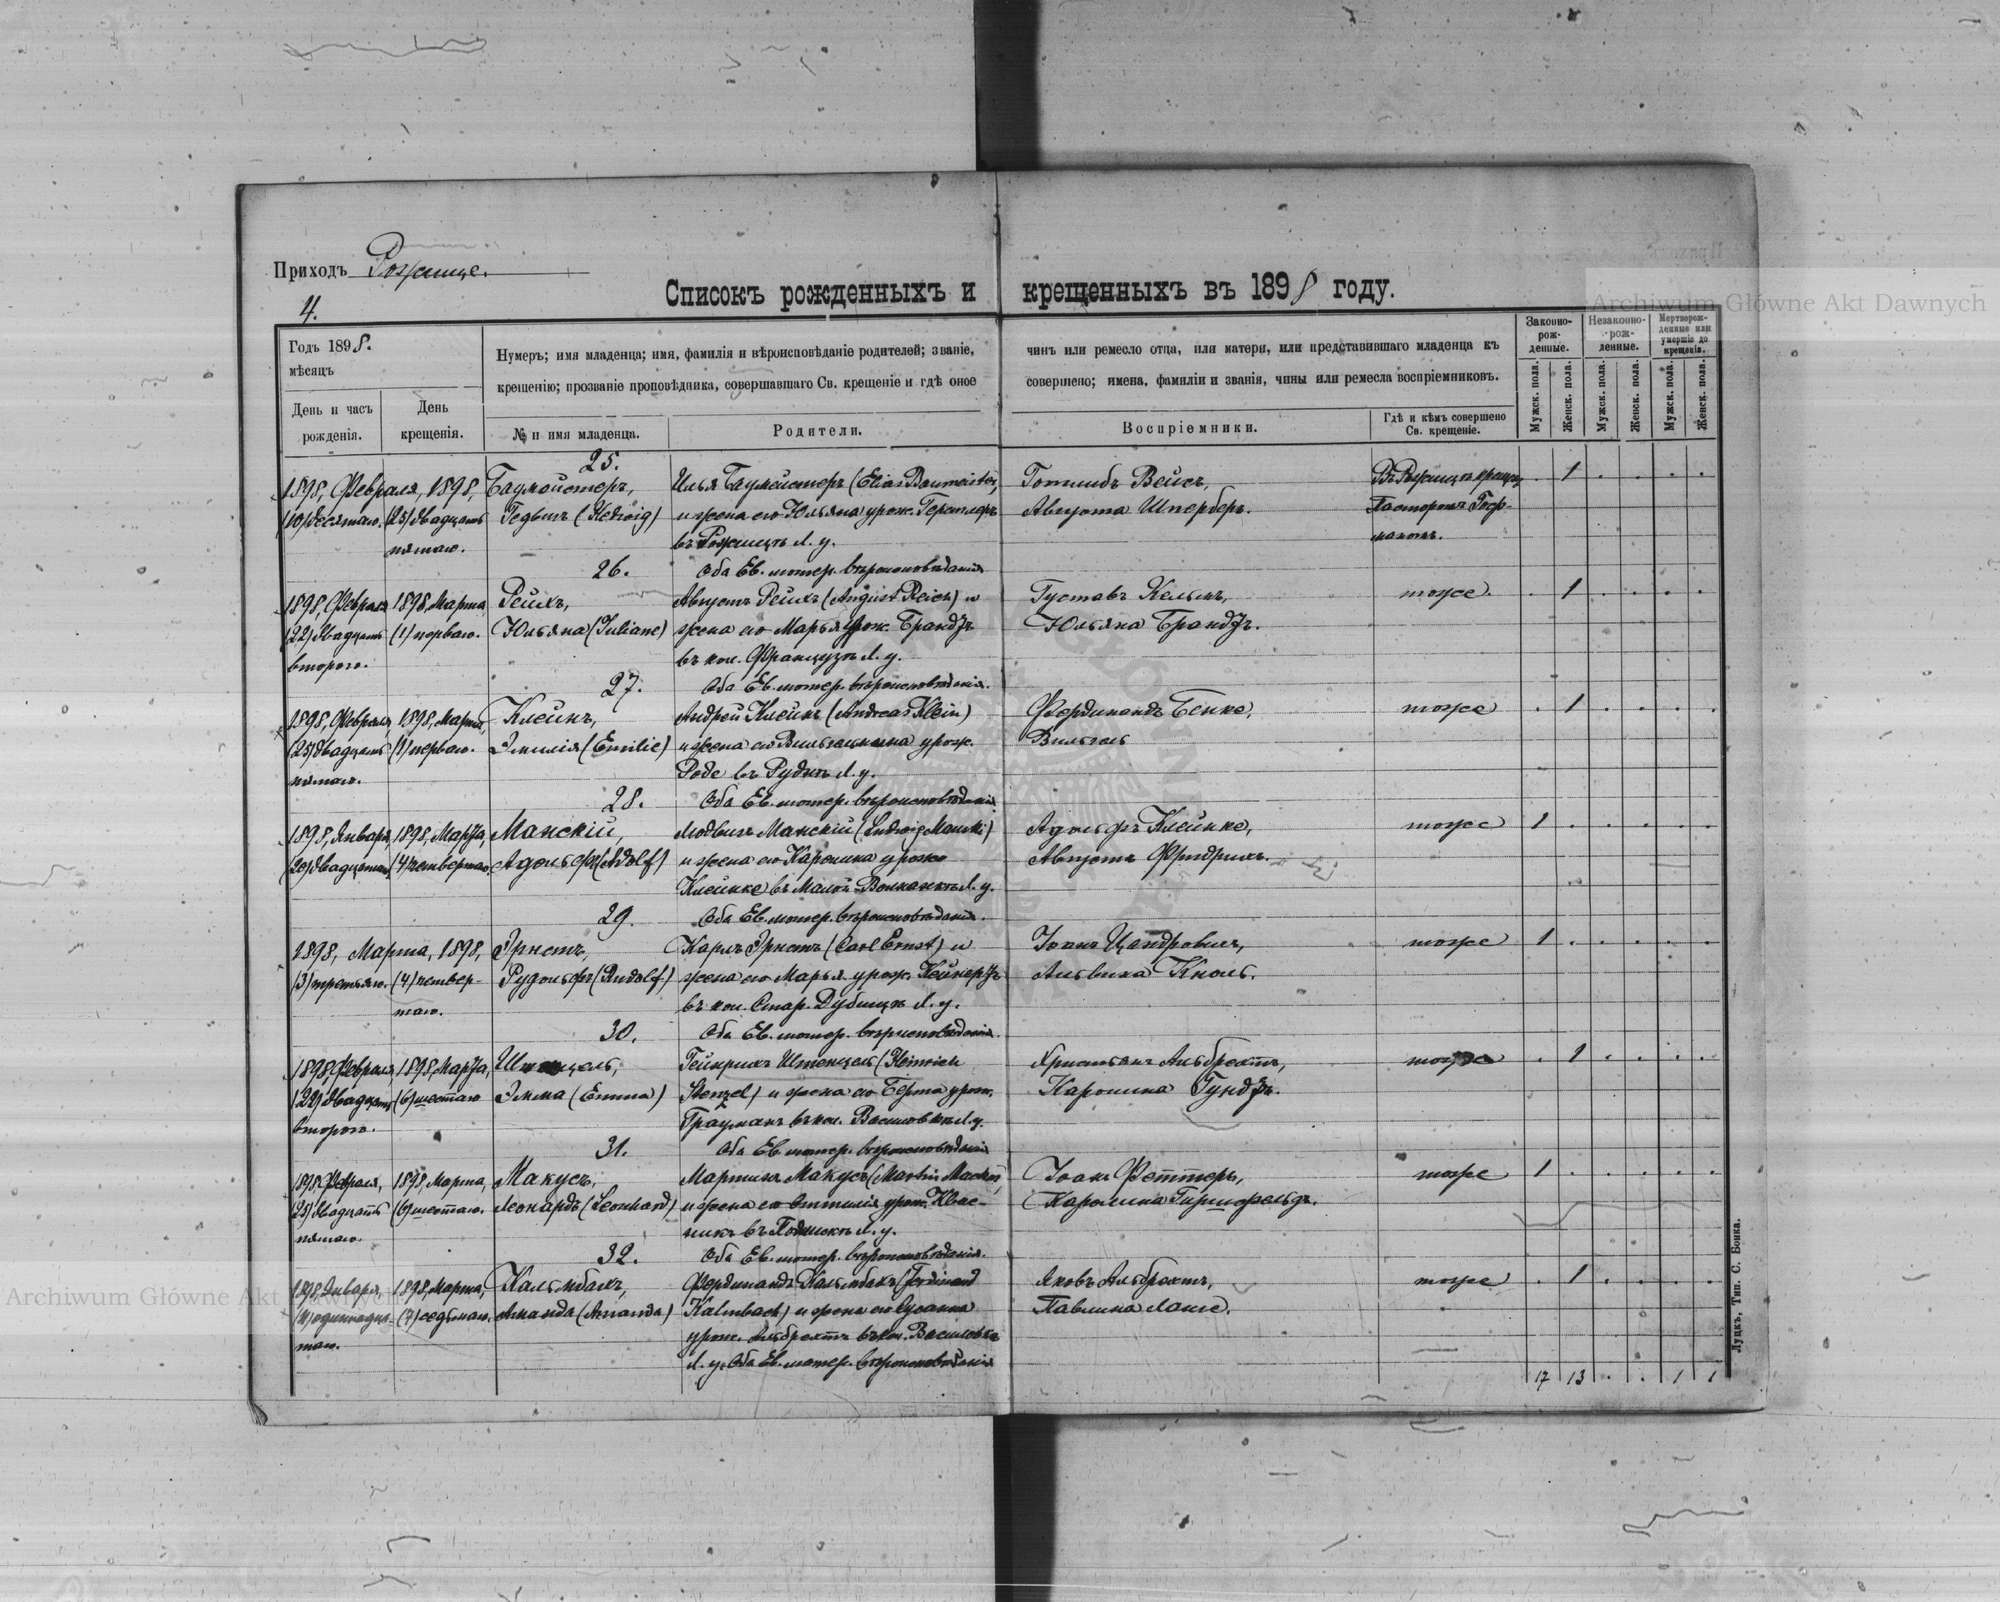 Приходъ Рожище.
4.
Списокъ рожденныхъ и крещенныхъ въ 1898 году.
Archiwum Główne Akt Dawnych
Годъ 1898.
мѣсяцъ
День и часъ рожденія.
День крещенія.
Нумеръ; имя младенца; имя, фамилія и вѣроисповѣданіе родителей; званіе, чинъ или ремесло отца, или матери, или представившаго младенца къ
крещенію; прозваніе проповѣдника, совершавшаго Св. крещеніе и гдѣ оное совершено; имена, фамиліи и званія, чины или ремесла воспріемниковъ.
№ и имя младенца.
Родители.
Воспріемники.
Гдѣ и кѣмъ совершено Св. крещеніе.
Законно-рож-денные.
Незаконно-рож-денные.
Мертворож-денные или умершіе до крещенія.
Мужск. пола.
Женск. пола.
Мужск. пола.
Женск. пола.
Мужск. пола.
Женск. пола.
25.
1898, Февраля, 1898, Баумейстеръ, Илья Баумейстеръ (Elias Baumeister) Готлибъ Вейсъ, Въ Рожищѣ крещ. . 1 . . . .
(10) десятаго. (25) двадцать Гедвигъ (Hedwig) и жена его Юльяна урож. Августа Шперберъ. Пасторомъ
пятаго. въ Рожищѣ Л. у.
26. Оба Ев. лютер. вѣроисповѣданія
1898, Февраля 1898, Марта, Рейхъ, Августъ Рейхъ (August Reich) и Густавъ тоже . 1 . . . .
(22) двадцать (1) перваго. Юльяна (Juliane) жена его Марья урож. Брандтъ Юльяна Брандтъ.
второго. въ кол. Французъ Л. у.
27. Оба Ев. лютер. вѣроисповѣданія.
1898, Февраля, 1898, Марта, Клейнъ, Андрей Клейнъ (Andreas Klein) Фердинандъ Бенке, тоже . 1 . . . .
(25) двадцать (1) перваго. Эмилія (Emilie) и жена его Вильгельмина урож. Вильгель
пятаго. Роде въ Рудкѣ Л. у.
28. Оба Ев. лютер. вѣроисповѣданія
1898, Января, 1898, Марта, Манскій, Людвигъ Манскій (Ludwig Manski) Адольфъ Клейнке, тоже 1 . . . . .
(20) двадцатаго, (4) четвертаго, Адольфъ (Adolf) и жена его Каролина урож. Августъ Фридрихъ.
Клейнке въ Малой Л. у.
29. Оба Ев. лютер. вѣроисповѣданія.
1898, Марта, 1898, Эрнстъ, Карлъ Эрнстъ (Carl Ernst) и тоже 1 . . . . .
(3) третьяго. (4) четвер- Рудольфъ (Rudolf) жена его Марья урож. Альвина Кноль.
таго. въ кол. Стар. Дубищѣ Л. у.
30. Оба Ев. лютер. вѣроисповѣданія.
1898, Февраля 1898, Марта, Штенцель, Гейнрихъ Штенцель (Heinrich Христьянъ Альбрехтъ, тоже . 1 . . . .
(22) двадцать (6) шестаго Эмма (Emma) Stenzel) и жена его Берта урож. Каролина Гундтъ.
второго. Грауманъ въ кол. Василовкѣ Л. у.
31. Оба Ев. лютер. вѣроисповѣданія
1898, Февраля, 1898, Марта, Макусъ, Мартинъ Макусъ (Martin Іоанъ Феттеръ, тоже 1 . . . . .
(25) двадцать (6) шестаго. Леонардъ (Leonhard) и жена его Оттилія урож. Квас- Каролина Гиршфельдъ.
пятаго. никъ въ Л. у.
32. Оба Ев. лютер. вѣроисповѣданія.
1898, Января, 1898, Марта, Кальмбахъ, Фердинандъ Кальмбахъ (Ferdinand Яковъ Альбрехтъ, тоже . 1 . . . .
(11) одиннадца- (7) седьмаго. Аманда (Amanda) Kalmbach) и жена его Сусанна Павлина
таго. урож. Альбрехтъ въ кол. Василовкѣ
Л. у. Оба Ев. лютер. вѣроисповѣданія
17 13 . . 1 1
Луцкъ, Тип. С. Бонка.
Archiwum Główne Akt Dawnych